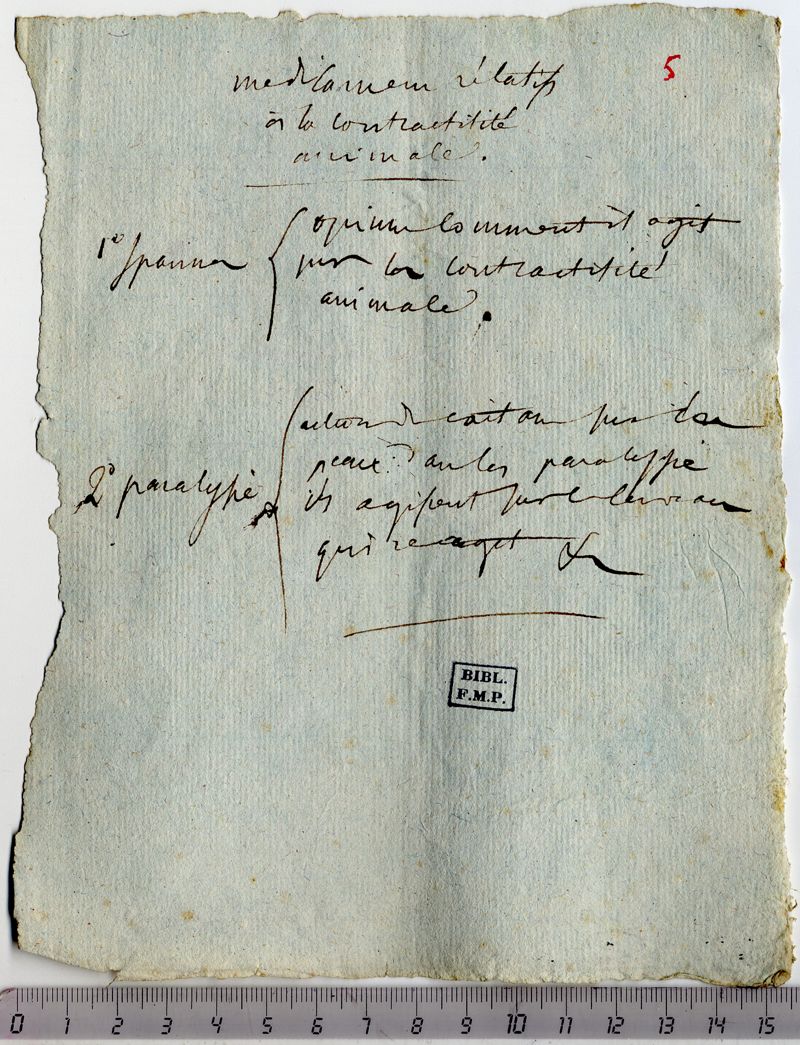 5
medicamens rélatifs
à la contractilité
animale.
1º spasmes
opium comment il agit
sur la contractilité
animale.
2º paralysie
action de sur les
peaux dans les paralysie
ils agissent sur le cerveau
qui reagit &
BIBL.
F.M.P.
0 1 2 3 4 5 6 7 8 9 10 11 12 13 14 15